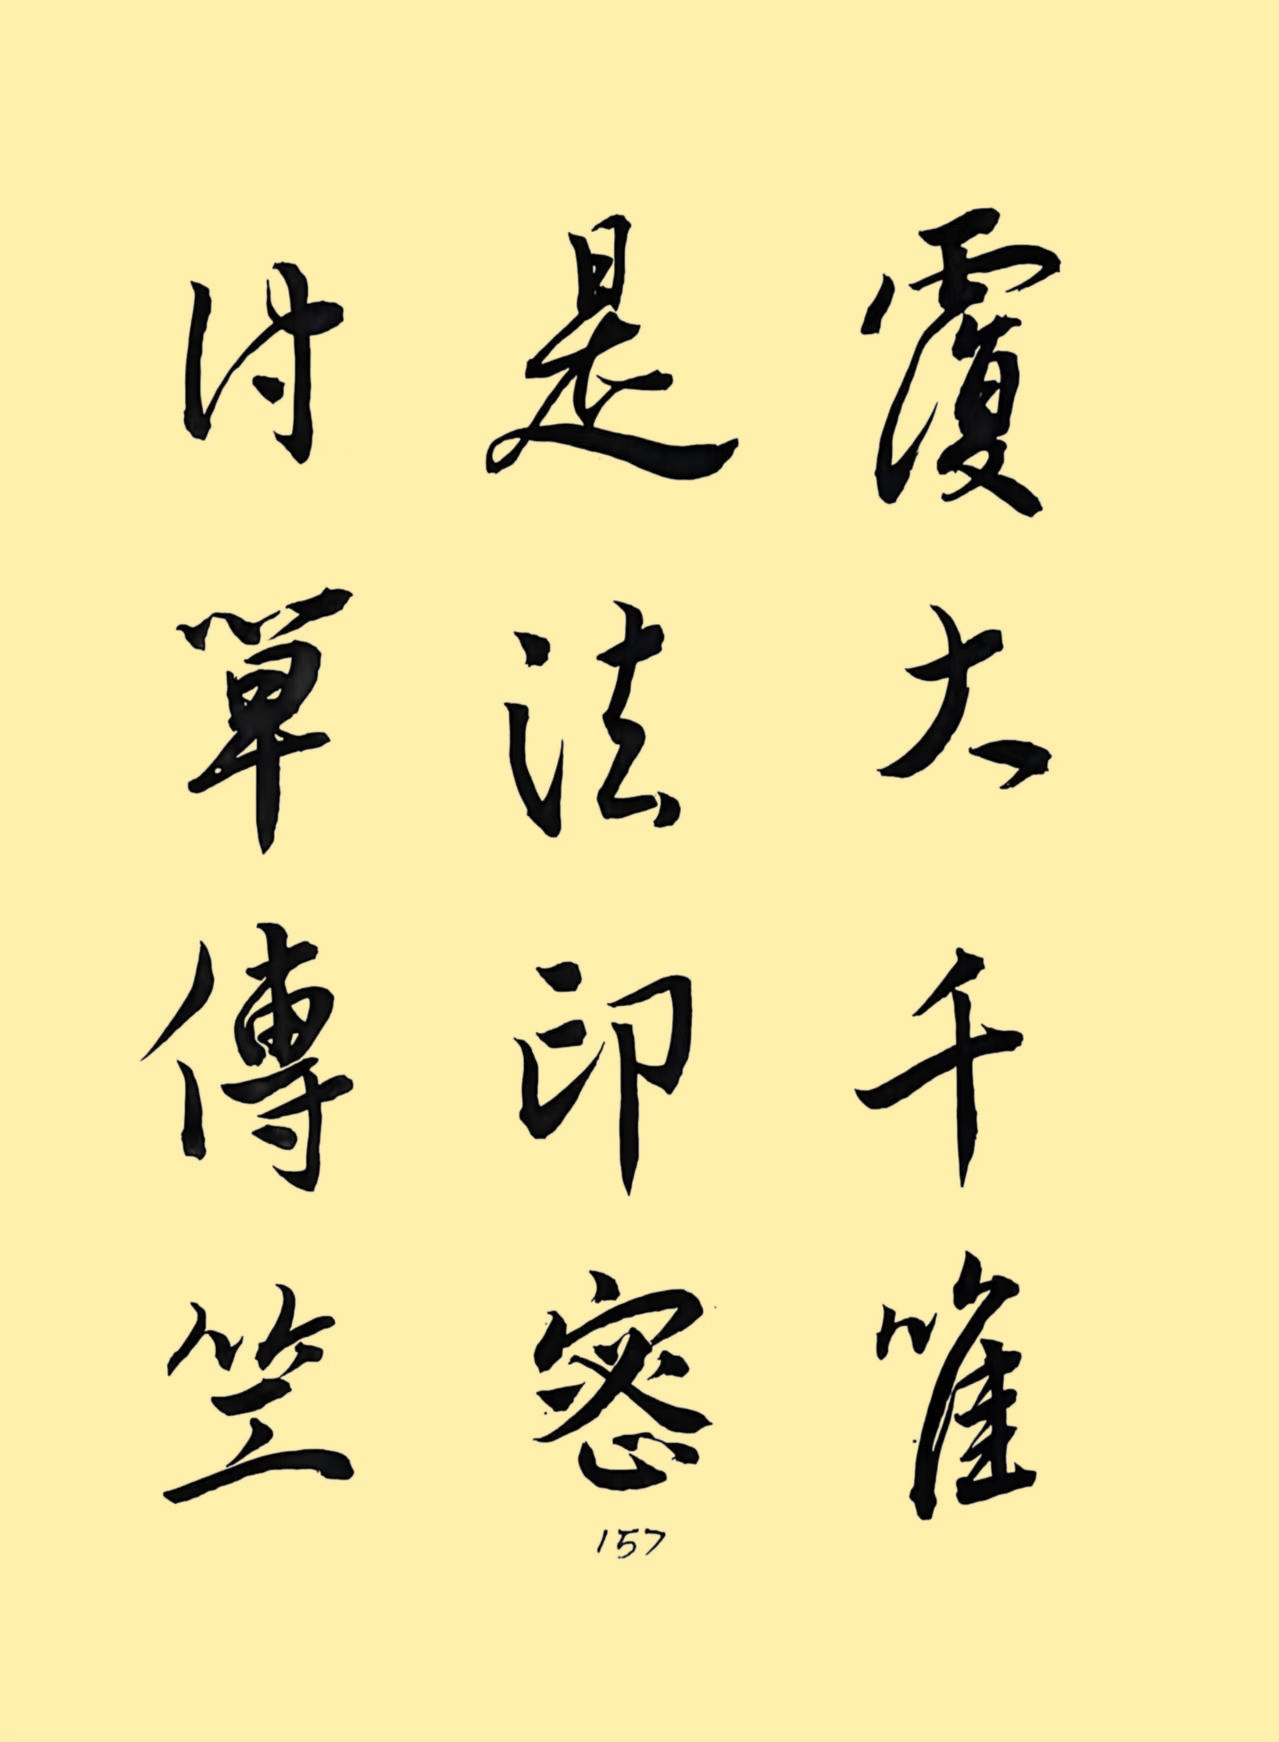 覆大千唯
是法印密
付單傳竺
157